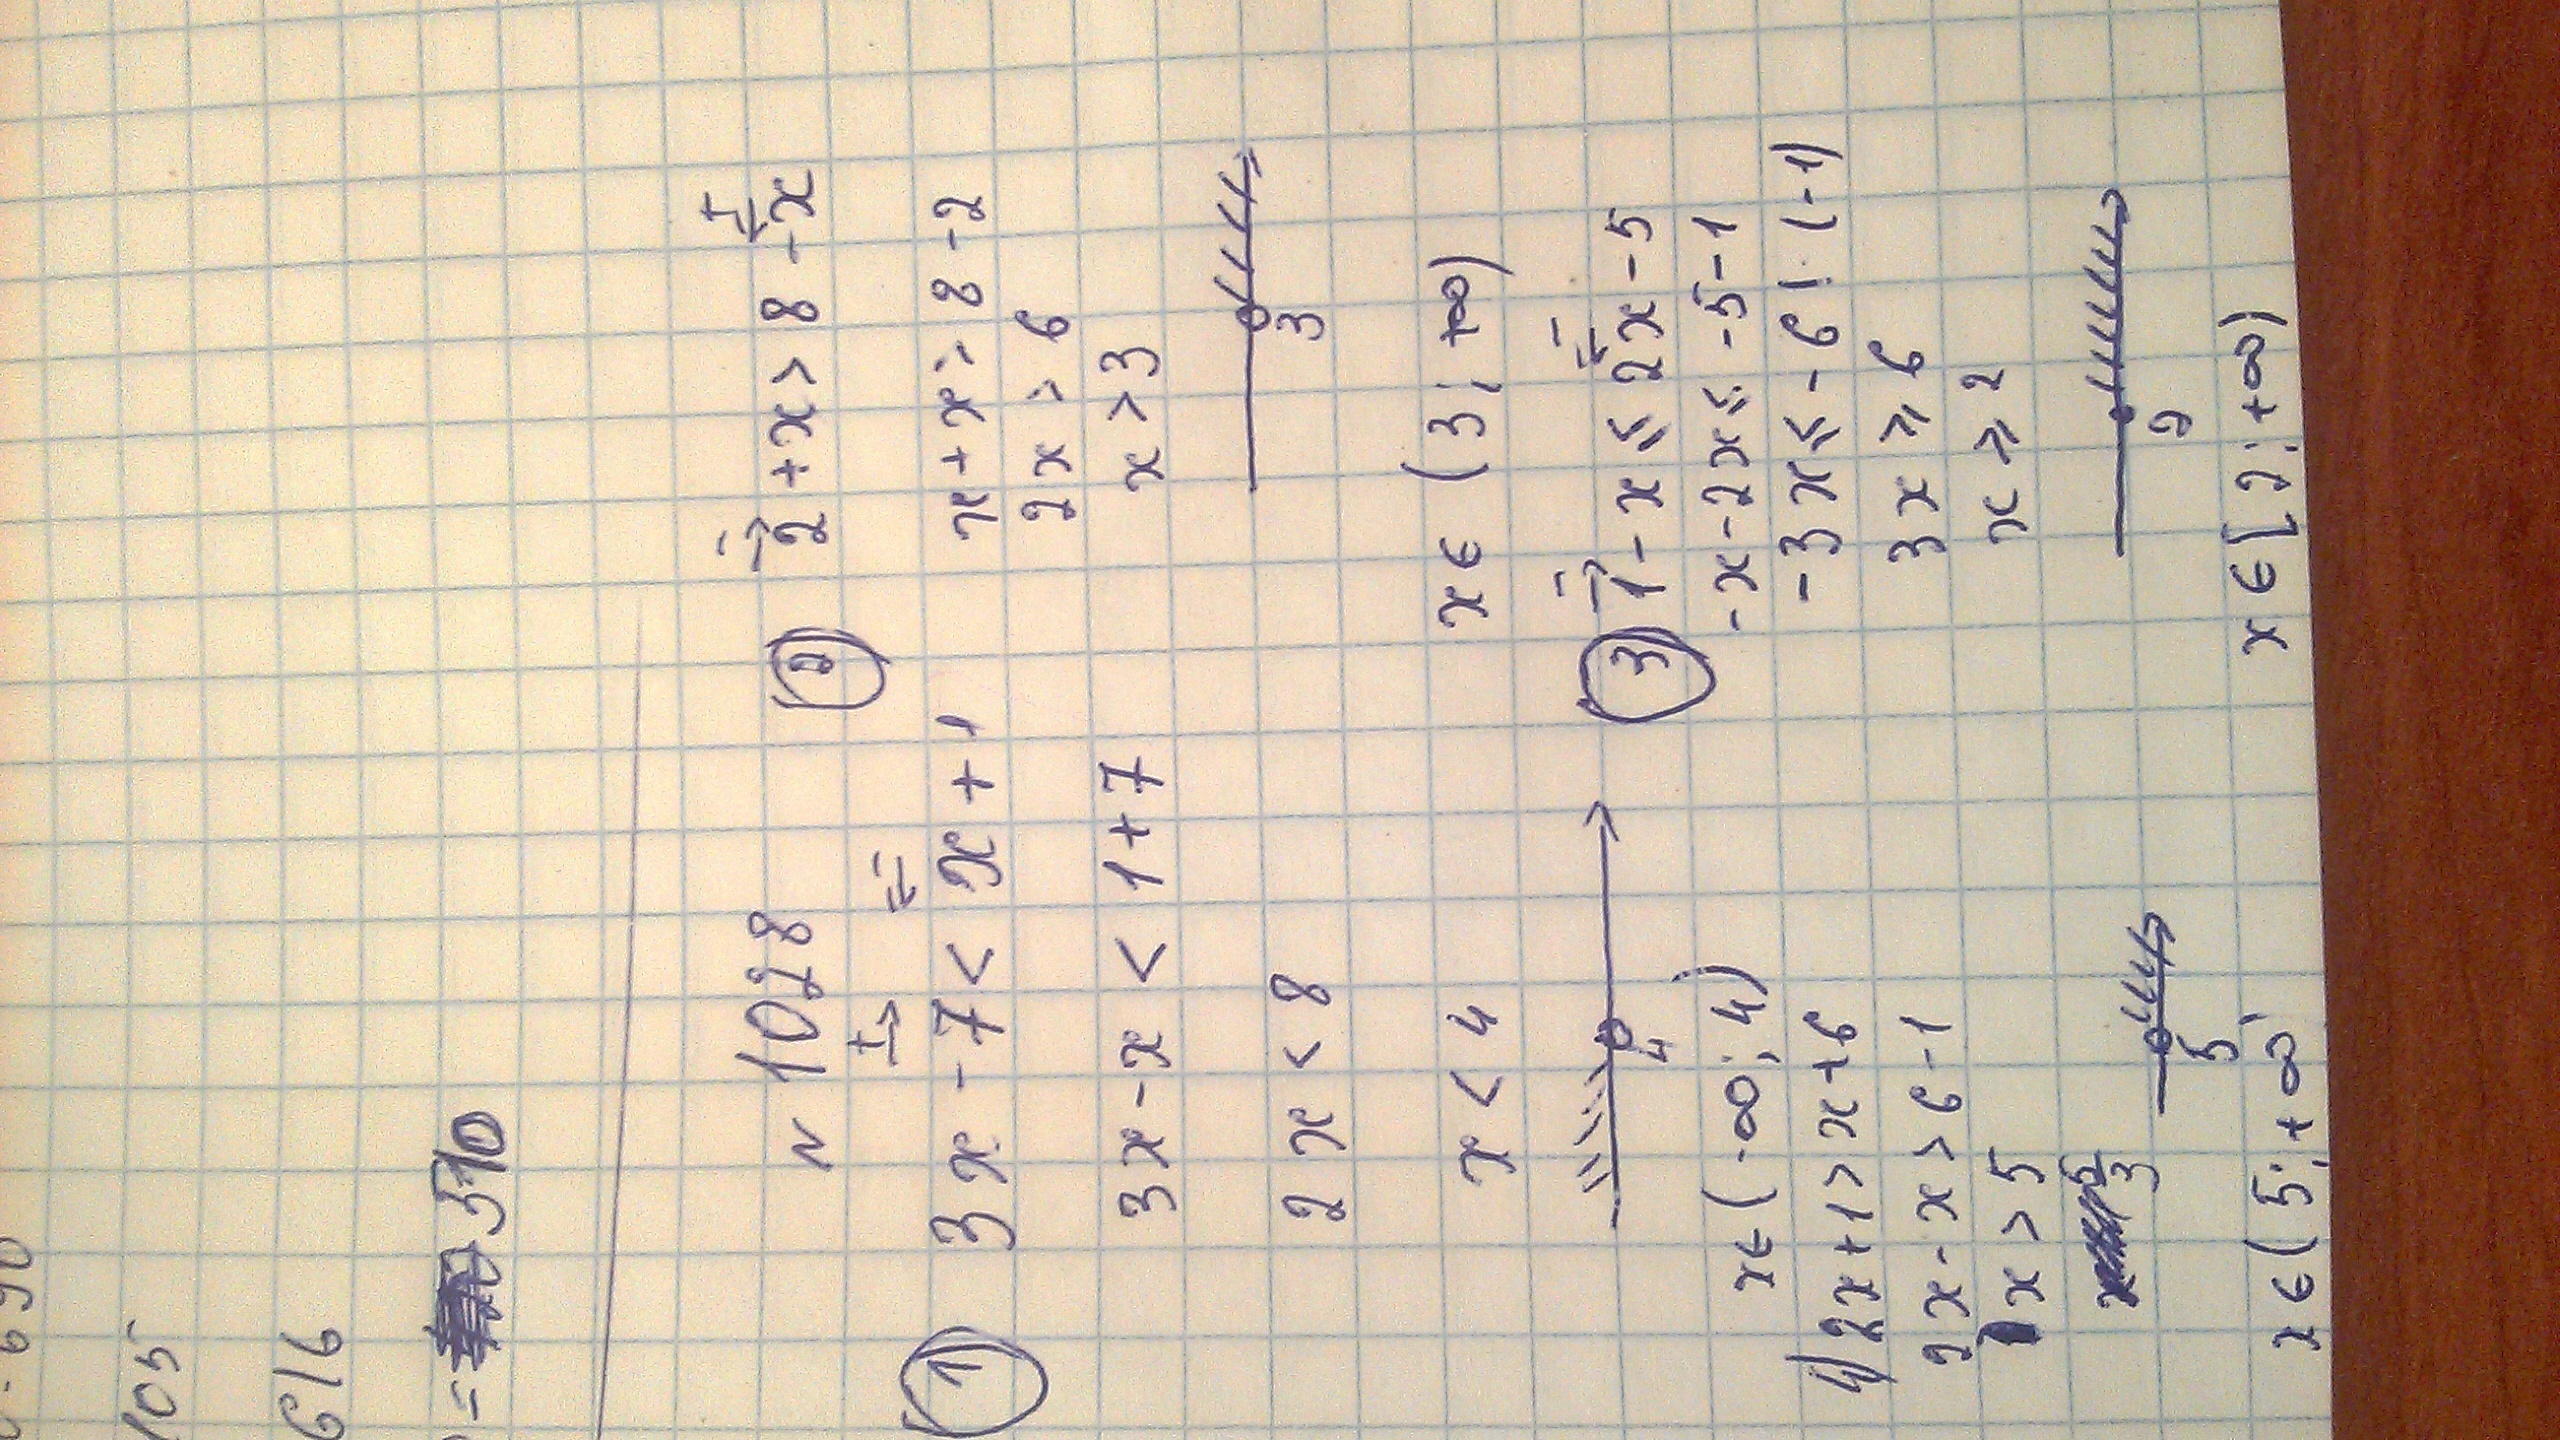 105
616
= 510
N 1028
① 3x - 7 < x + 1
3x - x < 1 + 7
2x < 8
x < 4
4
x ∈ (-∞; 4)
② 2 + x > 8 - x
x + x > 8 - 2
2x > 6
x > 3
3
x ∈ (3; +∞)
③ 1 - x ⩽ 2x - 5
-x - 2x ⩽ -5 - 1
-3x ⩽ -6 | · (-1)
3x ⩾ 6
x ⩾ 2
2
x ∈ [2; +∞)
4) 2x + 1 > x + 6
2x - x > 6 - 1
x > 5
5
x ∈ (5; +∞